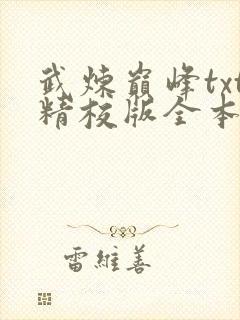 武炼巅峰txt
精校版全本
雷維善